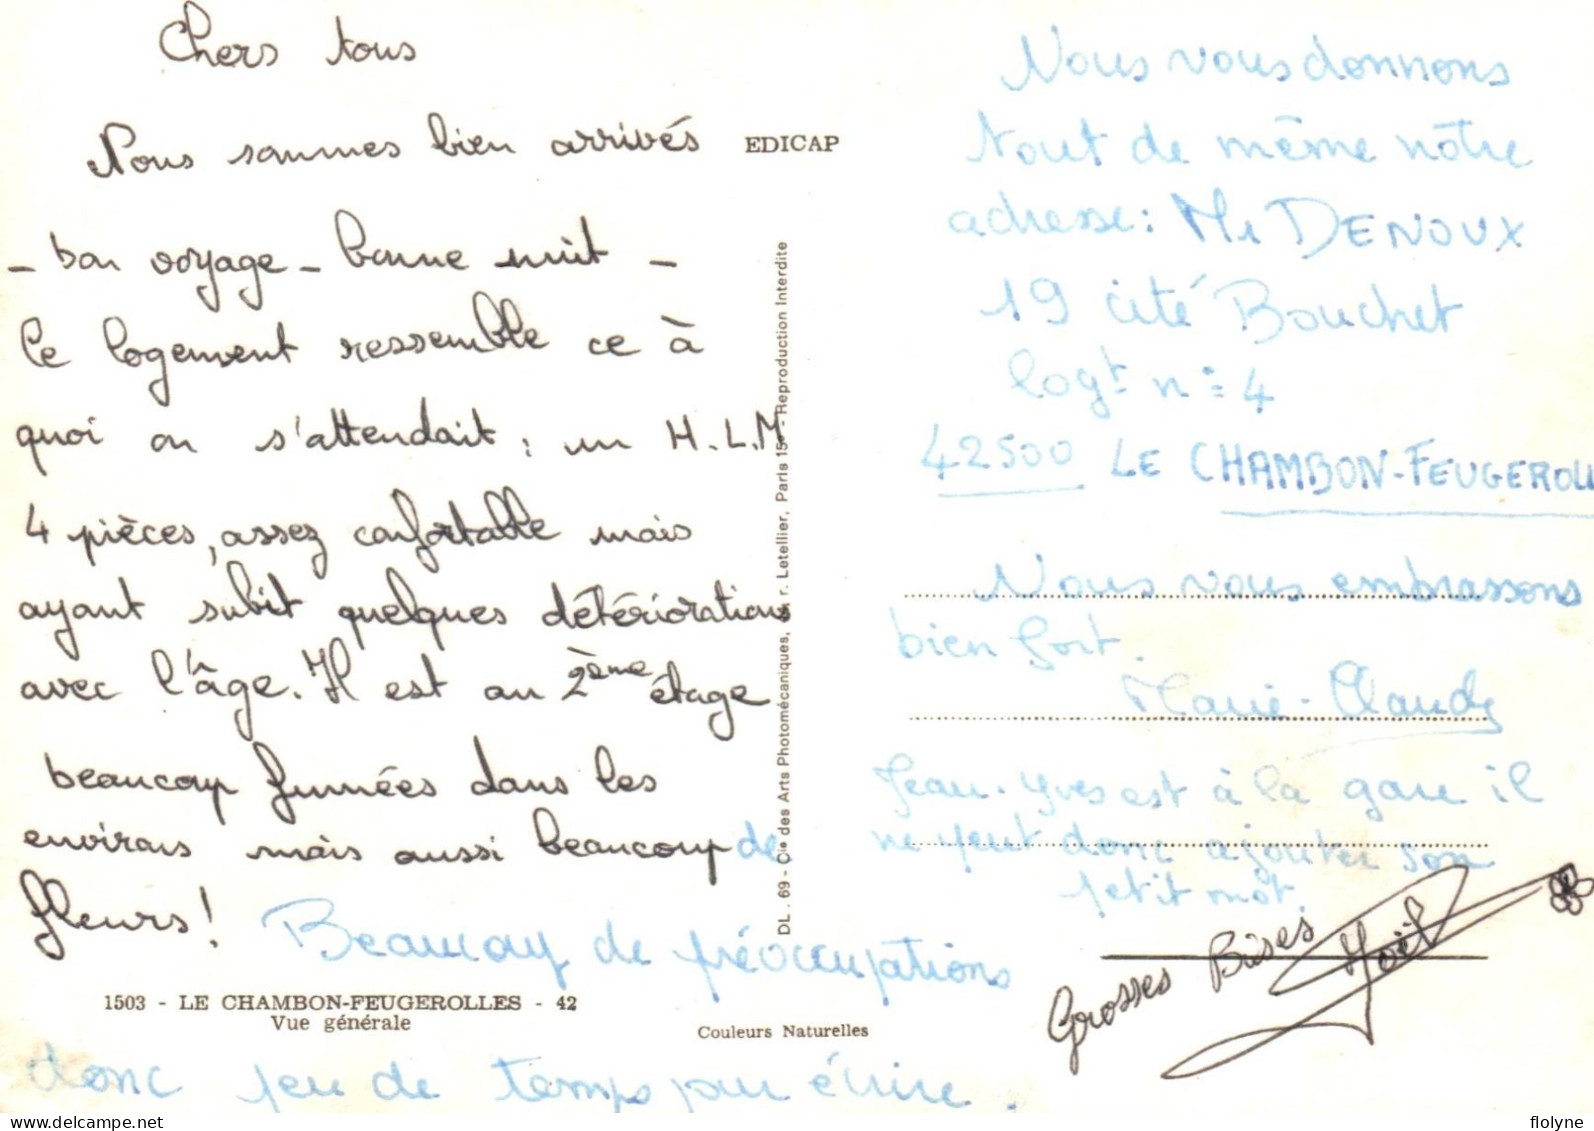 Chers tous
Nous sommes bien arrivés
- bon voyage - bonne nuit -
Le logement ressemble ce à
quoi on s'attendait : un H.L.M
4 pièces, assez confortable mais
ayant subit quelques détériorations
avec l'âge. Il est au 2ème étage
beaucoup fumées dans les
environs mais aussi beaucoup de
fleurs !
Beaucoup de préoccupations
donc peu de temps pour écrire.
1503 - LE CHAMBON-FEUGEROLLES - 42
Vue générale
Couleurs Naturelles
EDICAP
DL. 69 - Cie des Arts Photomécaniques, r. Letellier, Paris 15e - Reproduction Interdite
Nous vous donnons
tout de même nôtre
adresse : Mr DENOUX
19 cité Bouchet
logt n° 4
42500 LE CHAMBON-FEUGEROLL
Nous vous embrassons
bien fort.
Marie-Claude
Jean-Yves est à la gare il
ne peut donc ajouter son
petit mot.
Grosses Bises
Joël
flolyne